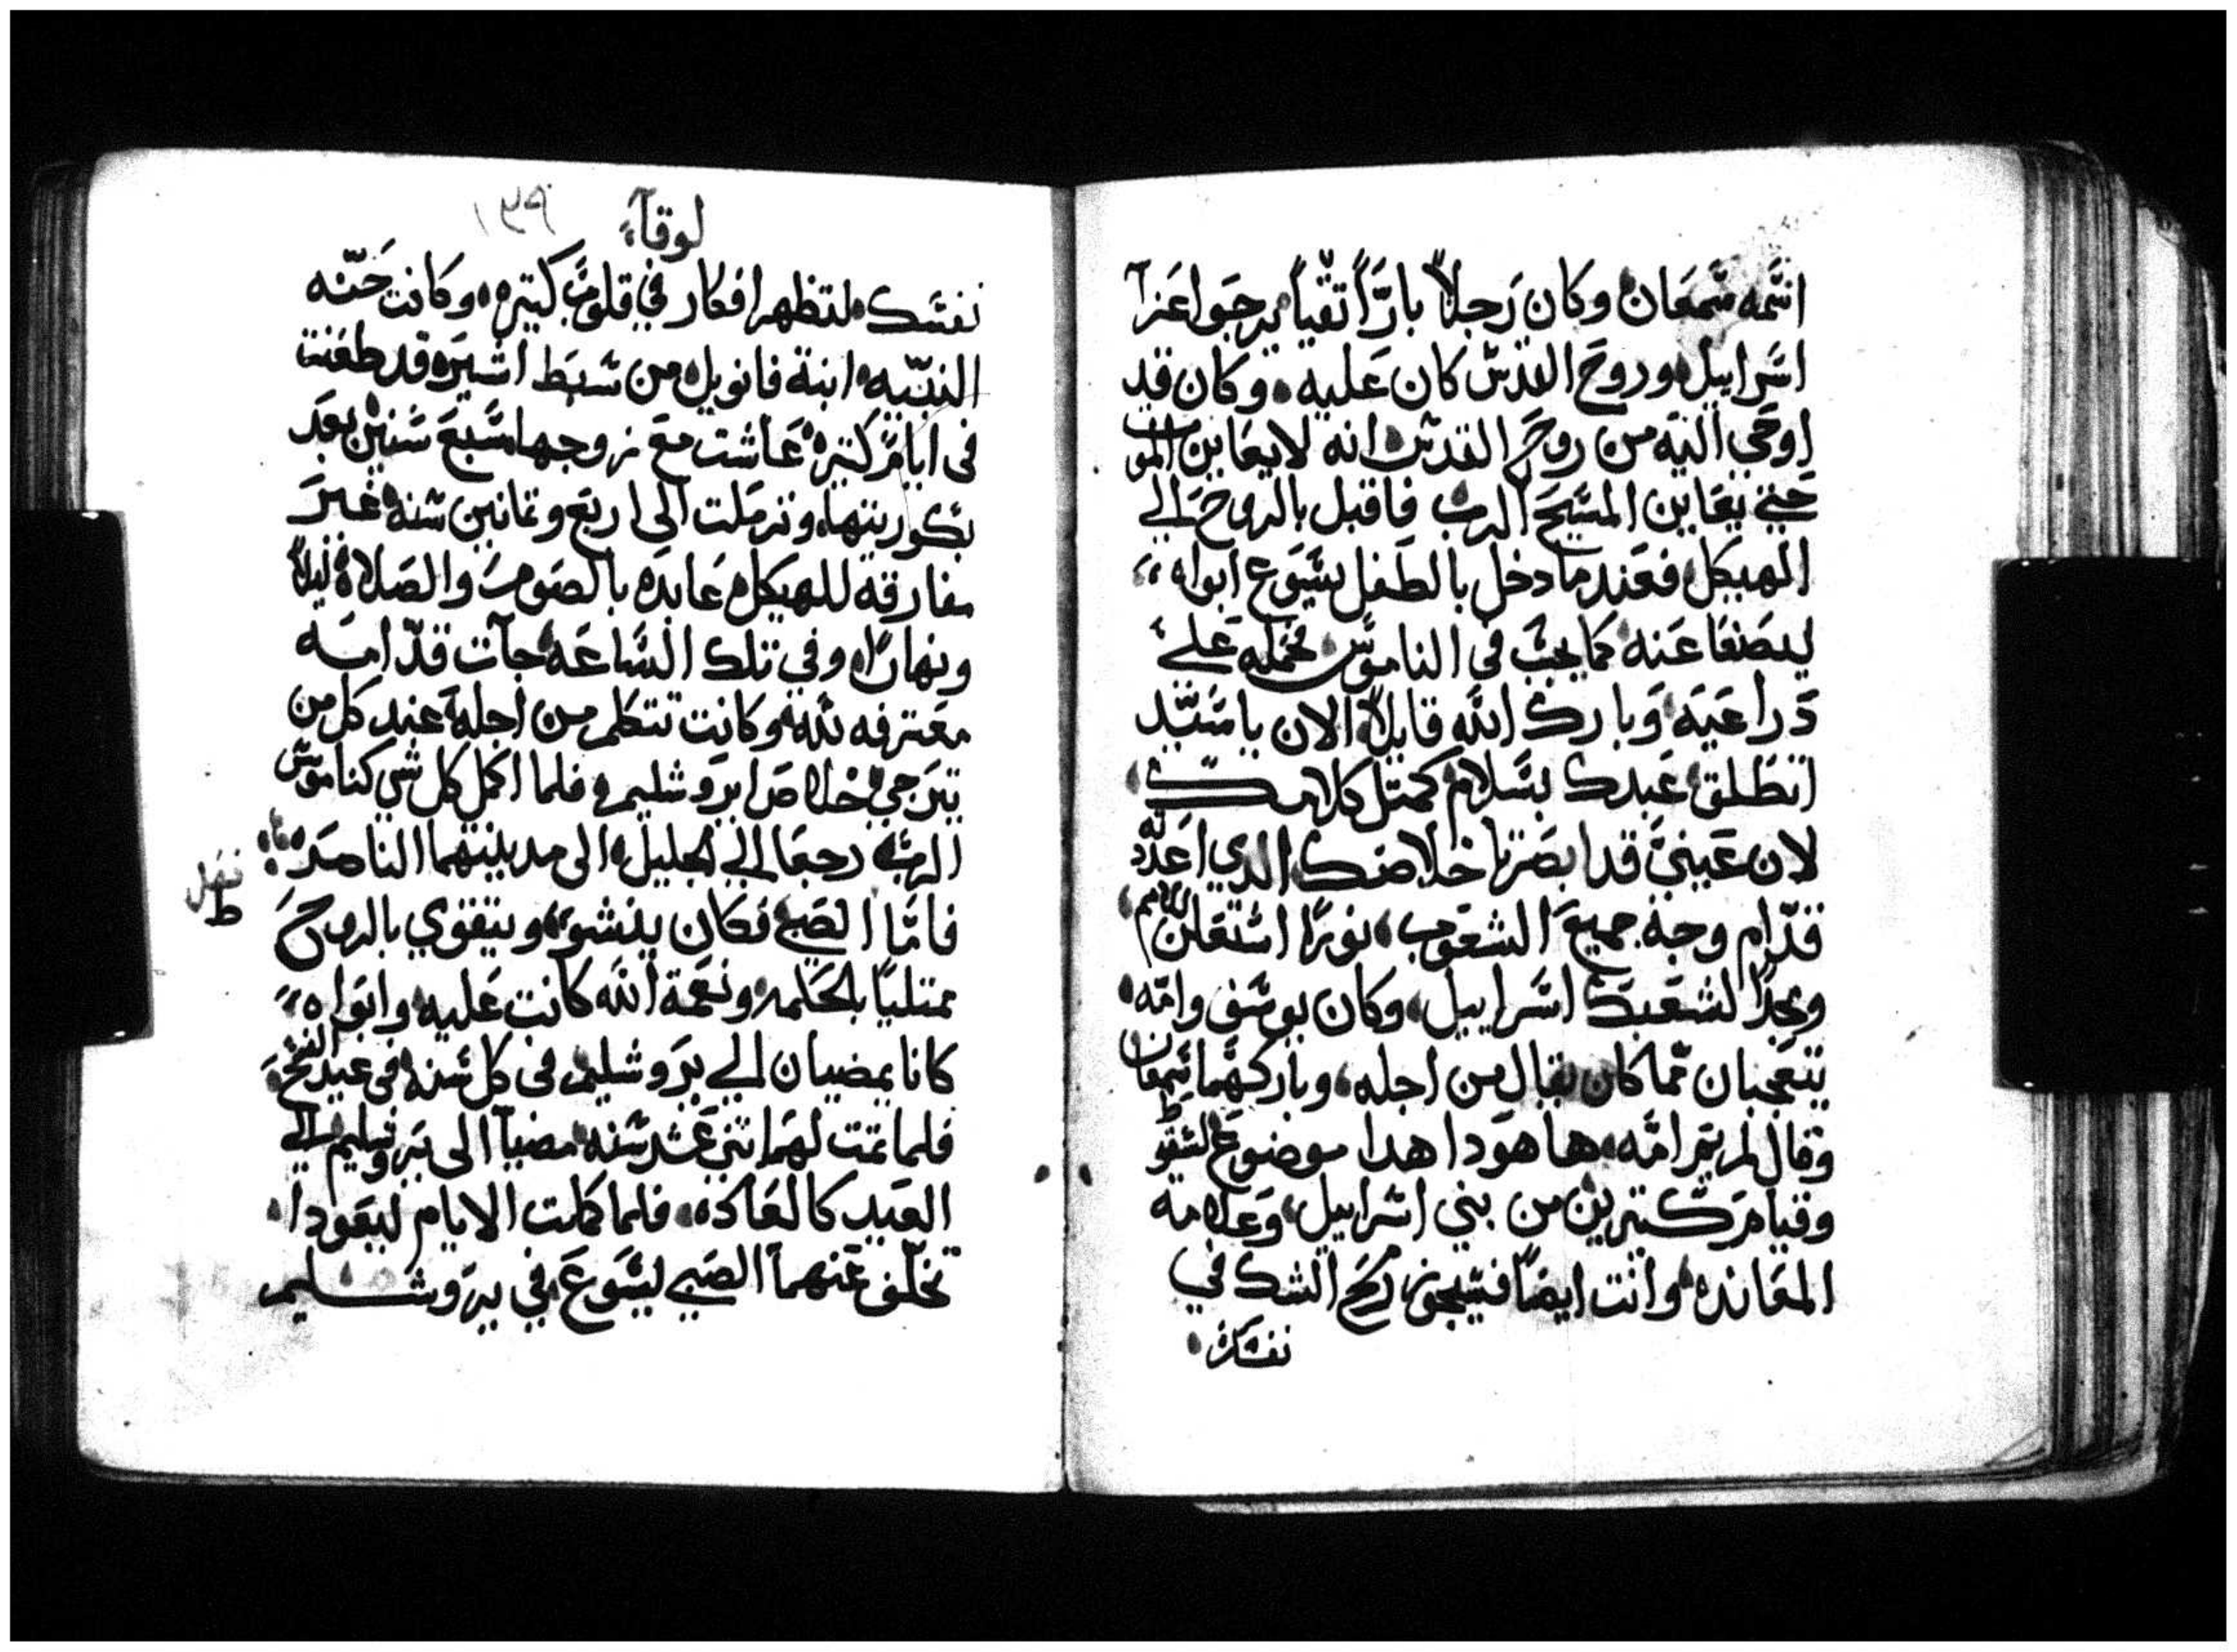 اسمه سمعان وكان رجلاً بارًا تقيًا يرجوا عزآ
اسراييل وروح القدس كان عليه وكان قد
اوحي اليه من روح القدس انه لا يعاين الموت
حتي يعاين المسيح الرب فاقبل بالروح الي
الهيكل فعندما دخل بالطفل يسوع ابواه
ليصنعا عنه كما يجب في الناموس فحمله علي
دراعيه وبارك الله قايلاً الان يا سيد
انطلق عبدك بسلام كمتل كلامك
لان عيني قد ابصرتا خلاصك الدي اعددته
قدّام وجه جميع الشعوب نورًا استعلن للامم
ومجدًا لشعبك اسراييل وكان يوسف وامّه
يتعجبان مما كان يقال من اجله وباركهما سمعان
وقال لمريم امّه ها هودا هدا موضوع لسقوط
وقيام كتيرين من بني اسراييل وعلامه
المعانده وانت ايضًا فسيجوز رمح الشك في
نفسك
لوقآء
١٣٩
نفسك لتظهر افكار في قلوب كتيره وكانت حنّه
النبيّه ابنة فانويل من سبط اشير وقد طعنت
في ايام كتيره عاشت مع زوجها سبع سنين بعد
بكوريتها وترملت الى اربع وتمانين سنه غير
مفارقه للهيكل عابده بالصوم والصلاة ليلاً
ونهارًا وفي تلك الساعه جآت قدّامه
معترفه لله وكانت تتكلم من اجله عند كل من
يترجي خلاص ايروشليم فلما اكمل كل شي كناموس
الرب رجعا الي الجليل الى مدينتهما الناصره
فامّا الصبي فكان ينشو ويتقوي بالروح
ممتليًا بالحكمه ونعمة الله كانت عليه وابواه
كانا يمضيان الي يروشليم في كل سنه في عيد الفسح
فلما تمت لهما اتني عشر سنه مضيا الى يروشليم الي
العيد كالعاده فلما كملت الايام ليعودا
تخلّف عنهما الصبي يسوع في يروشليم